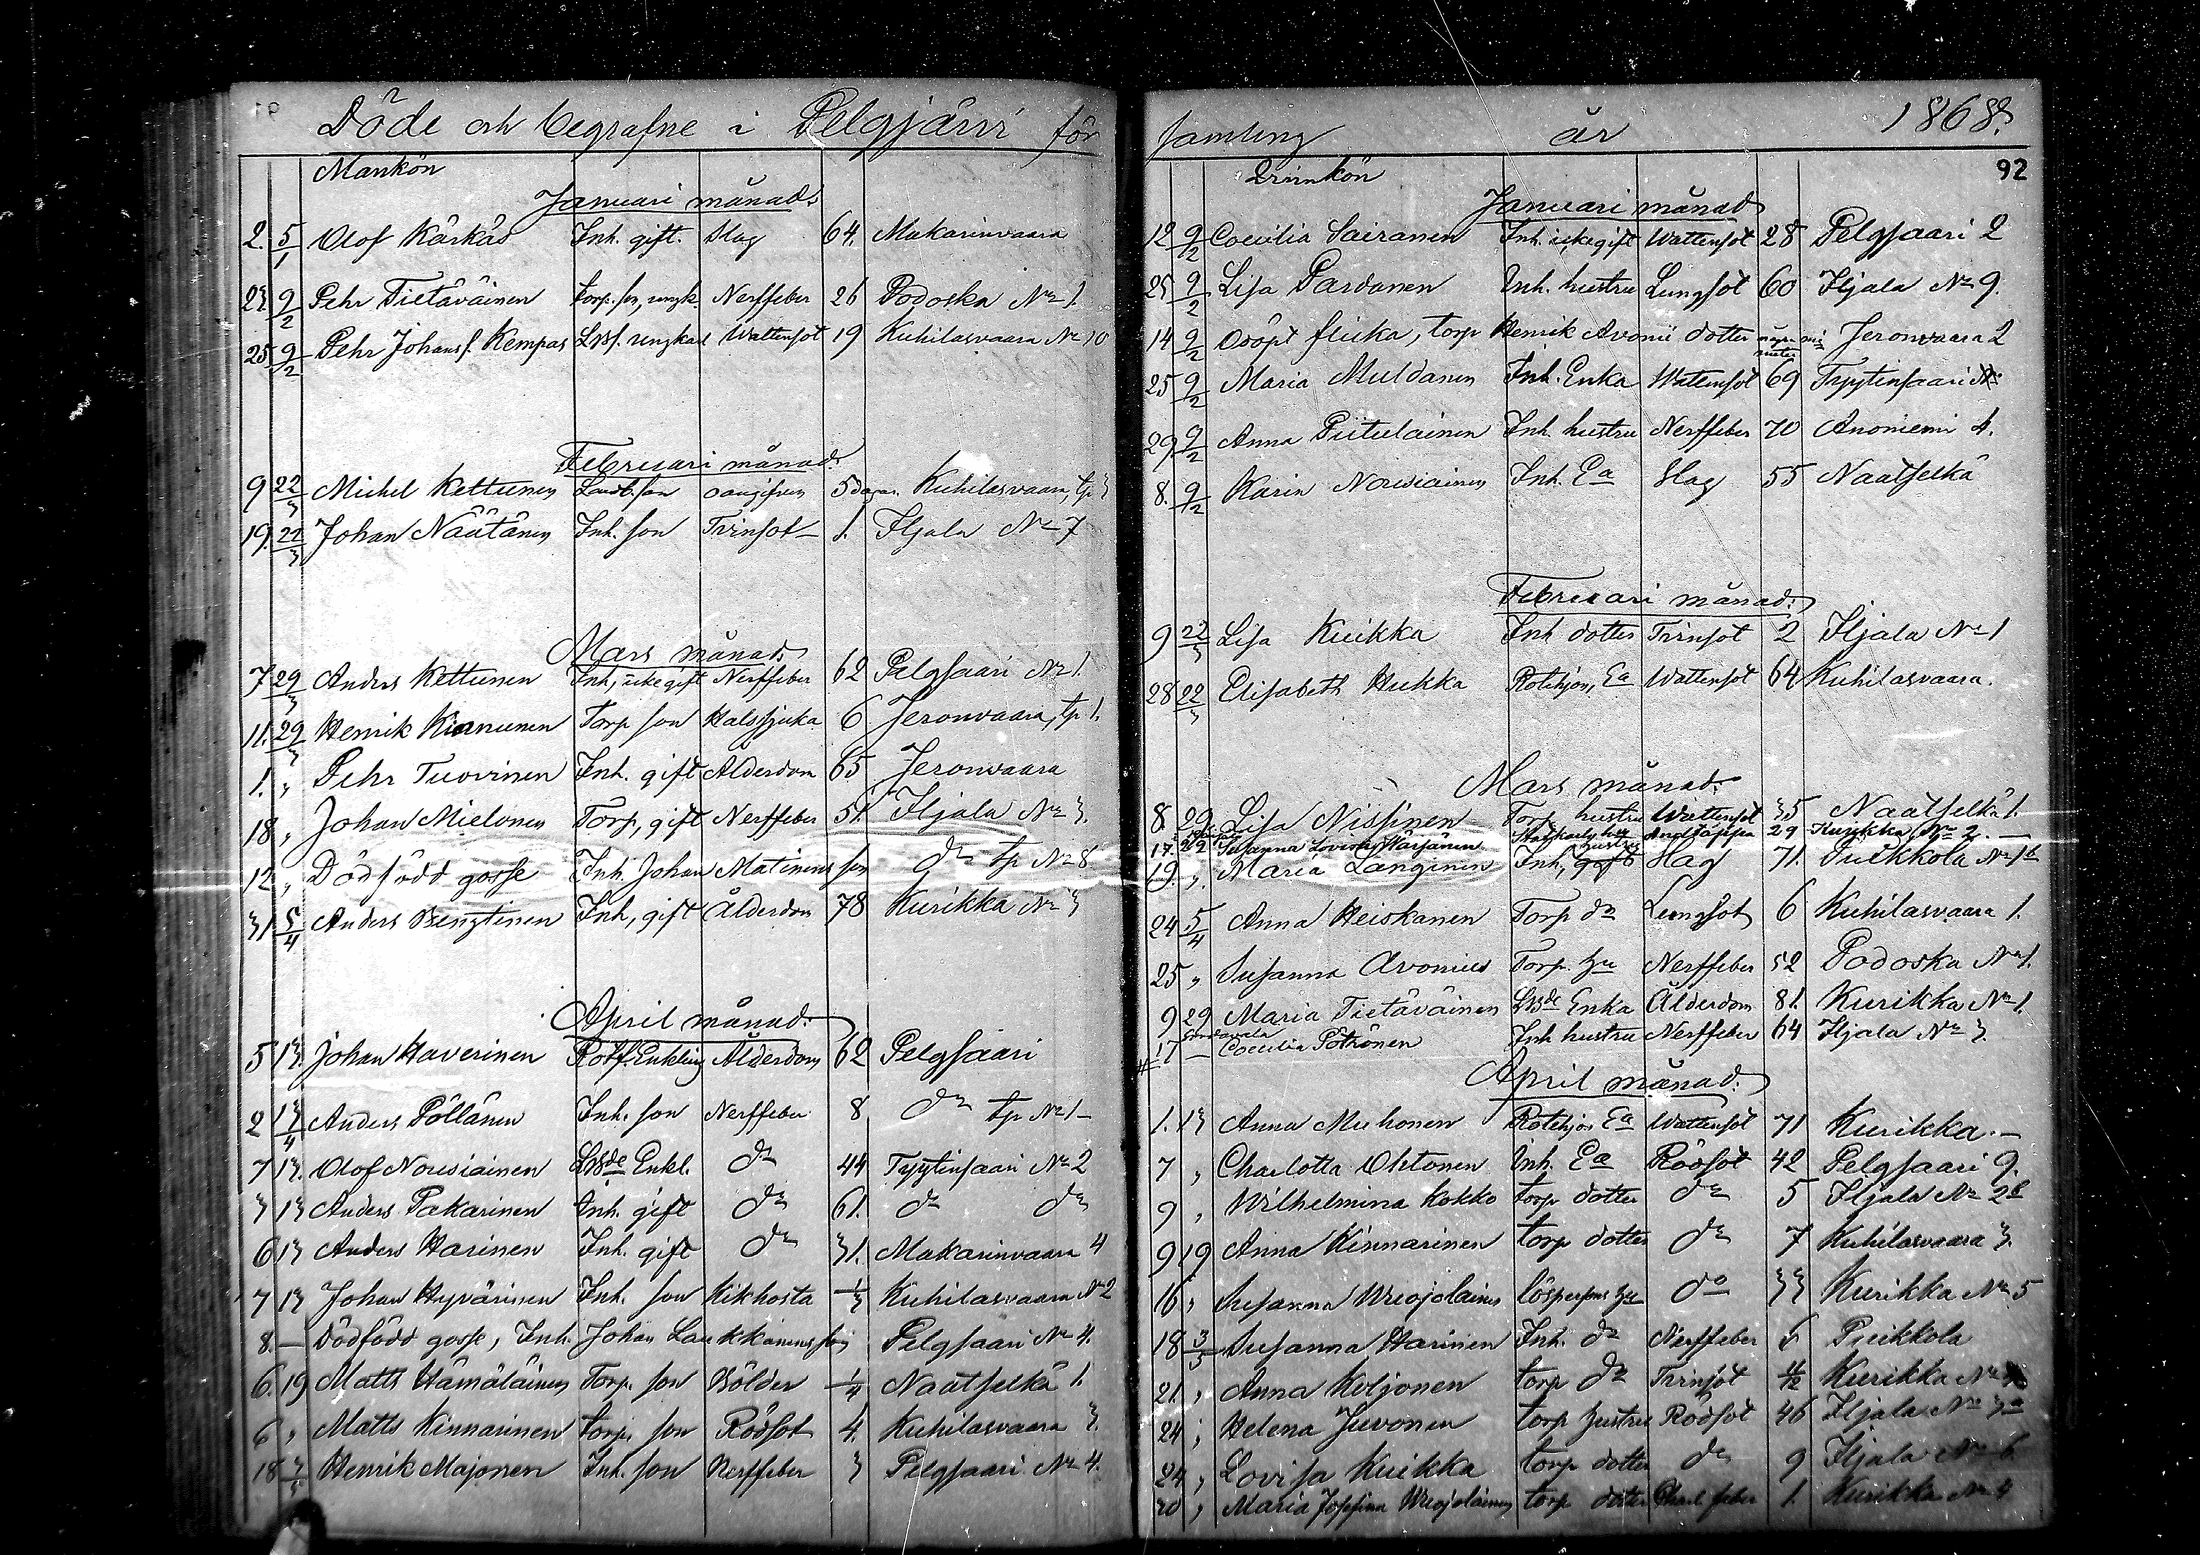 Döde och begrafne i Pelgjärvi för
Mankön
Januari månad.
2. 5/1 Olof Kärkäs Inh. gift. Slag 64. Makarinvaara
23 9/2 Pehr Tietäväinen torp. son, ungk. Nerffeber 26 Podoska No 1.
25 9/2 Pehr Johanss. Kempas Lösf. ungkarl Wattensot 19 Kuhilasvaara No 10
Februari månad.
9 22/3 Michel Kettunen Landb. son oangifven 5 dagar. Kuhilasvaara, tp 3
19. 22/3 Johan Näätänen Inh. son Tvinsot 1. Iljala No 7
Mars månad.
7 29/3 Anders Kettunen Inh, icke gift Nerffeber 62 Pelgsaari No 1.
11. 29/3 Henrik Kinnunen Torp son Halssjuka 6 Jeronvaara, tp 1.
1. " Pehr Tuovinen Inh. gift Ålderdom 65 Jeronvaara
18 " Johan Mielonen Torp, gift Nerffeber 51. Iljala No 3.
12 " Dödfödd gosse Inh. Johan Matinens son do tp No 8
31 5/4 Anders Bengtinen Inh, gift Ålderdom 78 Kurikka No 3
April månad.
5 13. Johan Haverinen Rotf. Enkling Ålderdom 62 Pelgsaari
2 13/4 Anders Pöllänen Inh. son Nerffeber 8 do tp No 1 –
7 13. Olof Nousiainen Lösde Enkl. do 44 Tyytinsaari No 2
3 13 Anders Pakarinen Inh. gift do 61. do do
6 13 Anders Harinen Inh. gift do 31. Makarinvaara 4
7 13 Johan Hyvärinen Inh. son Kikhosta 1/3 Kuhilasvaara No 2
8. – Dödfödd gosse, Inh. Johan Laukkanens son Pelgsaari No 4.
6. 19 Matts Hämäläinen Torp. son Bölder 1/4 Naatselkä 1.
6 " Matts Kinnarinen torp. son Rödsot 4. Kuhilasvaara 3.
18 3/5 Henrik Majonen Inh. son Nerffeber 3 Pelgsaari No 4.
samling år 1868.
92
Qvinnkön
Januari månad
12 9/2 Coecilia Sairanen Inh. icke gift Wattensot 28 Pelgsaari 2
25 9/2 Lisa Pardanen Inh. hustru Lungsot 60 Iljala No 9.
14 9/2 Odöpt flicka, torp Henrik Avonii dotter några minuter Jeronvaara 2
25 9/2 Maria Muldanen Inh. Enka Wattensot 69 Tyytinsaari
29 9/2 Anna Piitulainen Inh. hustru Nerffeber 70 Anoniemi 4.
8. 9/2 Karin Nousiainen Inh. Ea Slag 55 Naatselkä
Februari månad.
9 22/3 Lisa Kuikka Inh dotter Tvinsot 2 Iljala No 1
28 22/3 Elisabeth Hukka Rotehjon, Ea Wattensot 64 Kuhilasvaara.
Mars månad.
8. 29 Lisa Nissinen Torp hustru Wattensot 35 Naatselkä 1.
17. 22 Susanna Lovisa Härjänen Andtäppa 29 Kurikka No 2. –
19. ". Maria Langinen Inh, hustru Slag 71. Puikkola No 16
24 5/4 Anna Heiskanen Torp dr Lungsot 6 Kuhilasvaara 1.
25 " Susanna Avonius Torp. hu Nerffeber 52 Podoska No 1.
9 29 Maria Tietäväinen Lösde Enka Ålderdom 81. Kurikka No 1.
17 – Coecilia Pötrönen Inh hustru Nerffeber 64 Iljala No 3.
April månad.
1. 13 Anna Muhonen Rotehjon Ea Wattensot 71 Kurikka. –
7 " Charlotta Ohtonen Inh. Ea Rödsot 42 Pelgsaari 9.
9 " Wilhelmina Kokko torp dotter do 5 Iljala No 28
9 19 Anna Kinnarinen torp dotter do 7 Kuhilasvaara 3.
16 " Susanna Wuojolainen löspersons hu do 33 Kurikka No 5
18 3/5 Susanna Harinen Inh. dr Nerffeber 6 Puikkola
21. " Anna Koljonen torp dr Tvinsot Kurikka No
24 " Helena Juvonen torp hustru Rödsot 46 Iljala No 3a
24 " Lovisa Kuikka torp dotter do 9 Iljala No 6
20 " Maria Josefina Wuojolainen torp dotter feber 1. Kurikka No 4